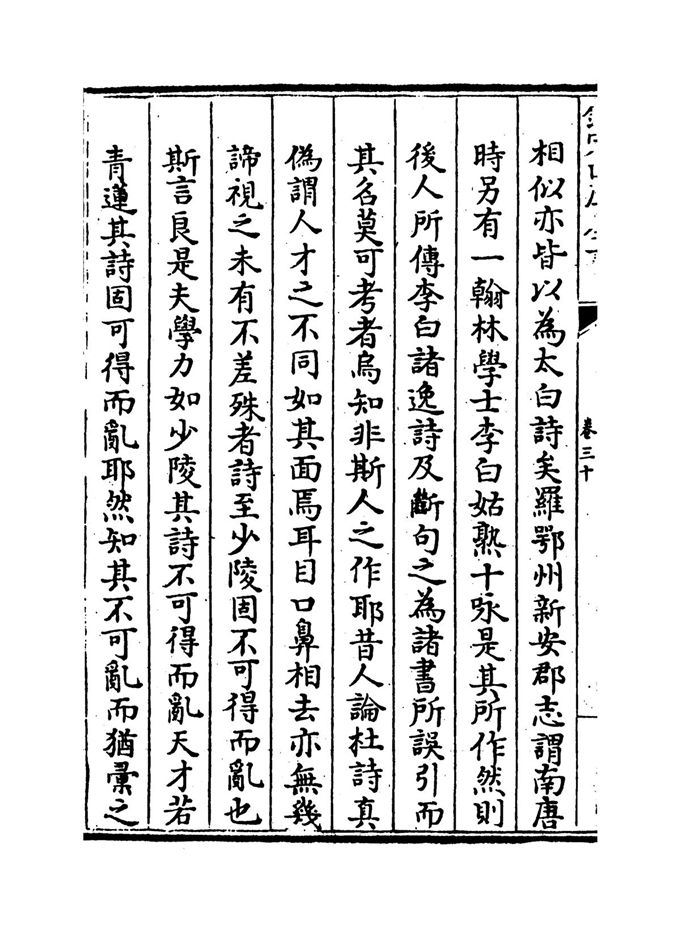 相似亦皆以為太白詩矣羅鄂州新安郡志謂南唐
時另有一翰林學士李白姑熟十咏是其所作然則
後人所傳李白諸逸詩及斷句之為諸書所誤引而
其名莫可考者烏知非斯人之作耶昔人論杜詩真
偽謂人才之不同如其面焉耳目口鼻相去亦無幾
諦視之未有不差殊者詩至少陵固不可得而亂也
斯言良是夫學力如少陵其詩不可得而亂天才若
青蓮其詩固可得而亂耶然知其不可亂而猶彚之
卷三十